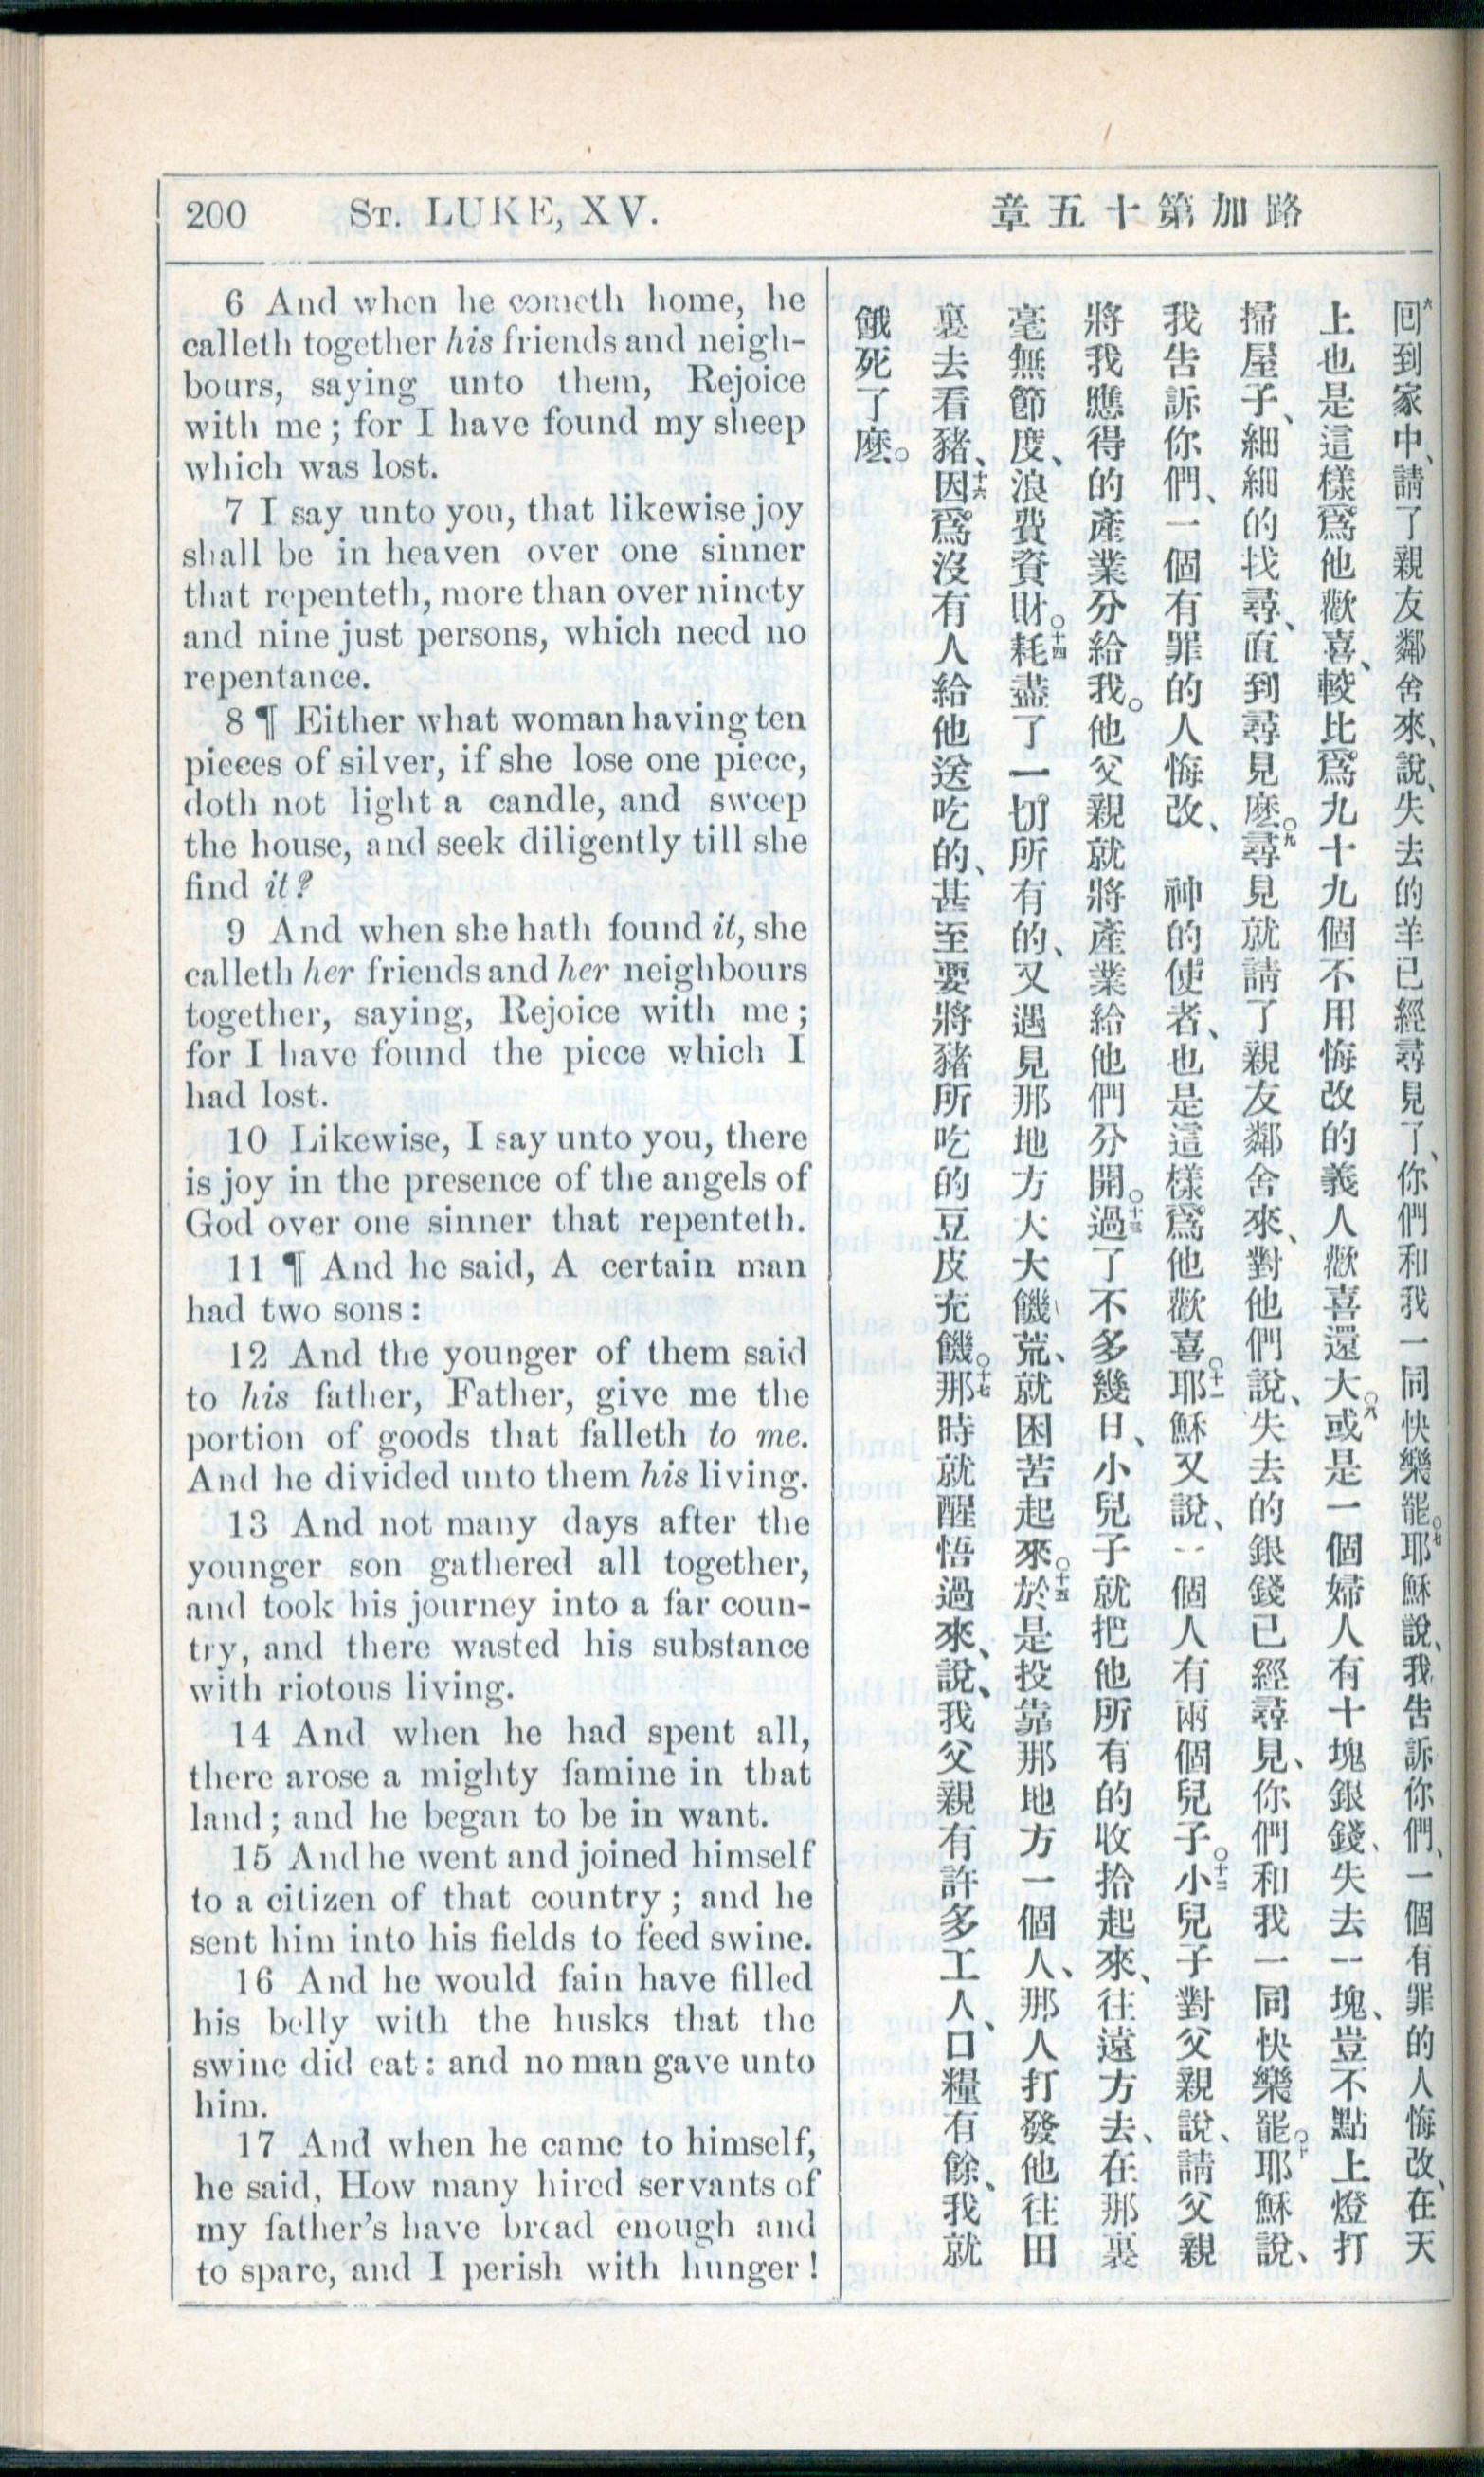 200 ST. LUKE, XV. 章五十第加路
6 And when he cometh home, he
calleth together his friends and neigh-
bours, saying unto them, Rejoice
with me; for I have found my sheep
which was lost.
7 I say unto you, that likewise joy
shall be in heaven over one sinner
that repenteth, more than over ninety
and nine just persons, which need no
repentance.
8 ¶ Either what woman having ten
pieces of silver, if she lose one piece,
doth not light a candle, and sweep
the house, and seek diligently till she
find it?
9 And when she hath found it, she
calleth her friends and her neighbours
together, saying, Rejoice with me;
for I have found the piece which I
had lost.
10 Likewise, I say unto you, there
is joy in the presence of the angels of
God over one sinner that repenteth.
11 ¶ And he said, A certain man
had two sons:
12 And the younger of them said
to his father, Father, give me the
portion of goods that falleth to me.
And he divided unto them his living.
13 And not many days after the
younger son gathered all together,
and took his journey into a far coun-
try, and there wasted his substance
with riotous living.
14 And when he had spent all,
there arose a mighty famine in that
land; and he began to be in want.
15 And he went and joined himself
to a citizen of that country; and he
sent him into his fields to feed swine.
16 And he would fain have filled
his belly with the husks that the
swine did eat: and no man gave unto
him.
17 And when he came to himself,
he said, How many hired servants of
my father's have bread enough and
to spare, and I perish with hunger!
六回到家中、請了親友鄰舍來、說、失去的羊已經尋見了、你們和我一同快樂罷。七耶穌說、我告訴你們、一個有罪的人悔改、在天
上也是這樣爲他歡喜、較比爲九十九個不用悔改的義人歡喜還大。八或是一個婦人有十塊銀錢、失去一塊、豈不點上燈打
掃屋子、細細的找尋直到尋見麽。九尋見就請了親友鄰舍來、對他們說、失去的銀錢已經尋見、你們和我一同快樂罷。十耶穌說、
我告訴你們、一個有罪的人悔改、 神的使者、也是這樣爲他歡喜。十一耶穌又說、一個人有兩個兒子。十二小兒子對父親說、請父親
將我應得的產業分給我。他父親就將產業給他們分開。十三過了不多幾日、小兒子就把他所有的收拾起來、往遠方去、在那裏
毫無節度、浪費資財。十四耗盡了一切所有的、又遇見那地方大大饑荒、就困苦起來。十五於是投靠那地方一個人、那人打發他往田
裏去看豬、十六因爲沒有人給他送吃的甚至要將豬所吃的豆皮充饑。十七那時就醒悟過來、說、我父親有許多工人、口糧有餘、我就
餓死了麽。